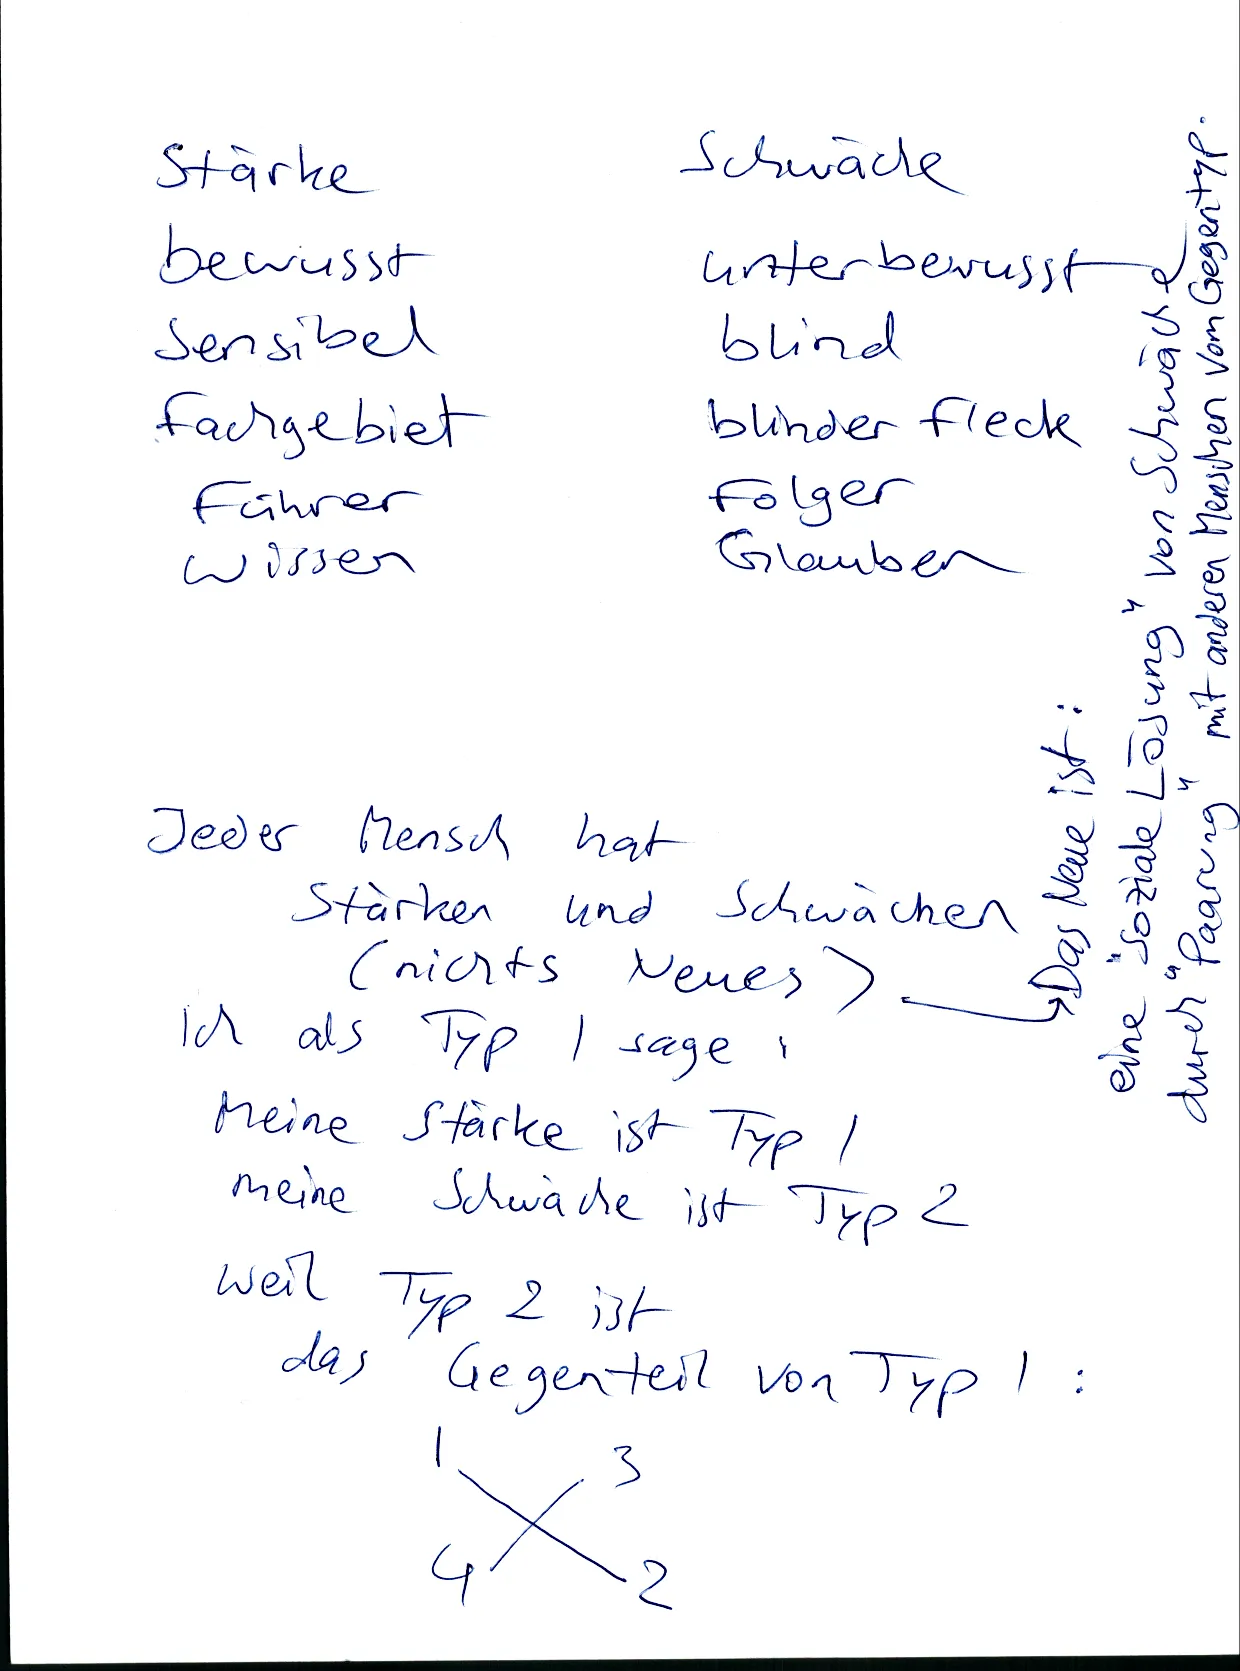 Stärke Schwäche
bewusst unterbewusst
Sensibel blind
Fachgebiet blinder Fleck
Führer Folger
Wissen Glauben
Jeder Mensch hat
Stärken und Schwächen
(nichts Neues)
Ich als Typ 1 sage :
Meine Stärke ist Typ 1
meine Schwäche ist Typ 2
weil Typ 2 ist
das Gegenteil von Typ 1 :
1 3
4 2
Das Neue ist :
eine "soziale Lösung" von Schwäche
durch "Paarung" mit anderen Menschen vom Gegentyp.